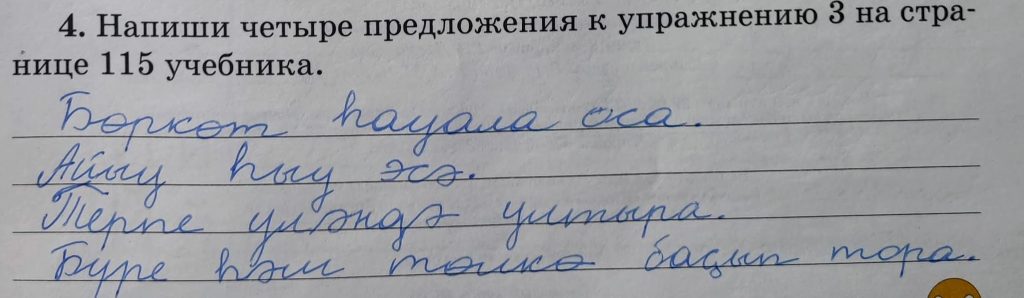 4. Напиши четыре предложения к упражнению 3 на стра-
нице 115 учебника.
Бөркөт һауала оса.
Айыу һыу эсә.
Терпе үләндә ултыра.
Бүре һәм төлкө баҫып тора.